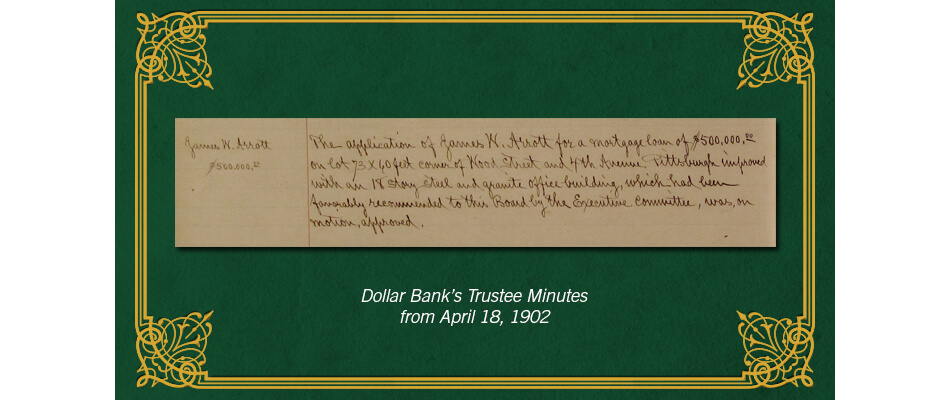 James W. Arrott
$500,000.00
The application of James W. Arrott for a mortgage loan of $500,000.00
on lot 73 x 60 feet corner of Wood Street and 4th Avenue Pittsburgh improved
with an 18 story steel and granite office building, which had been
favorably recommended to this Board by the Executive Committee, was, on
motion, approved.
Dollar Bank's Trustee Minutes
from April 18, 1902